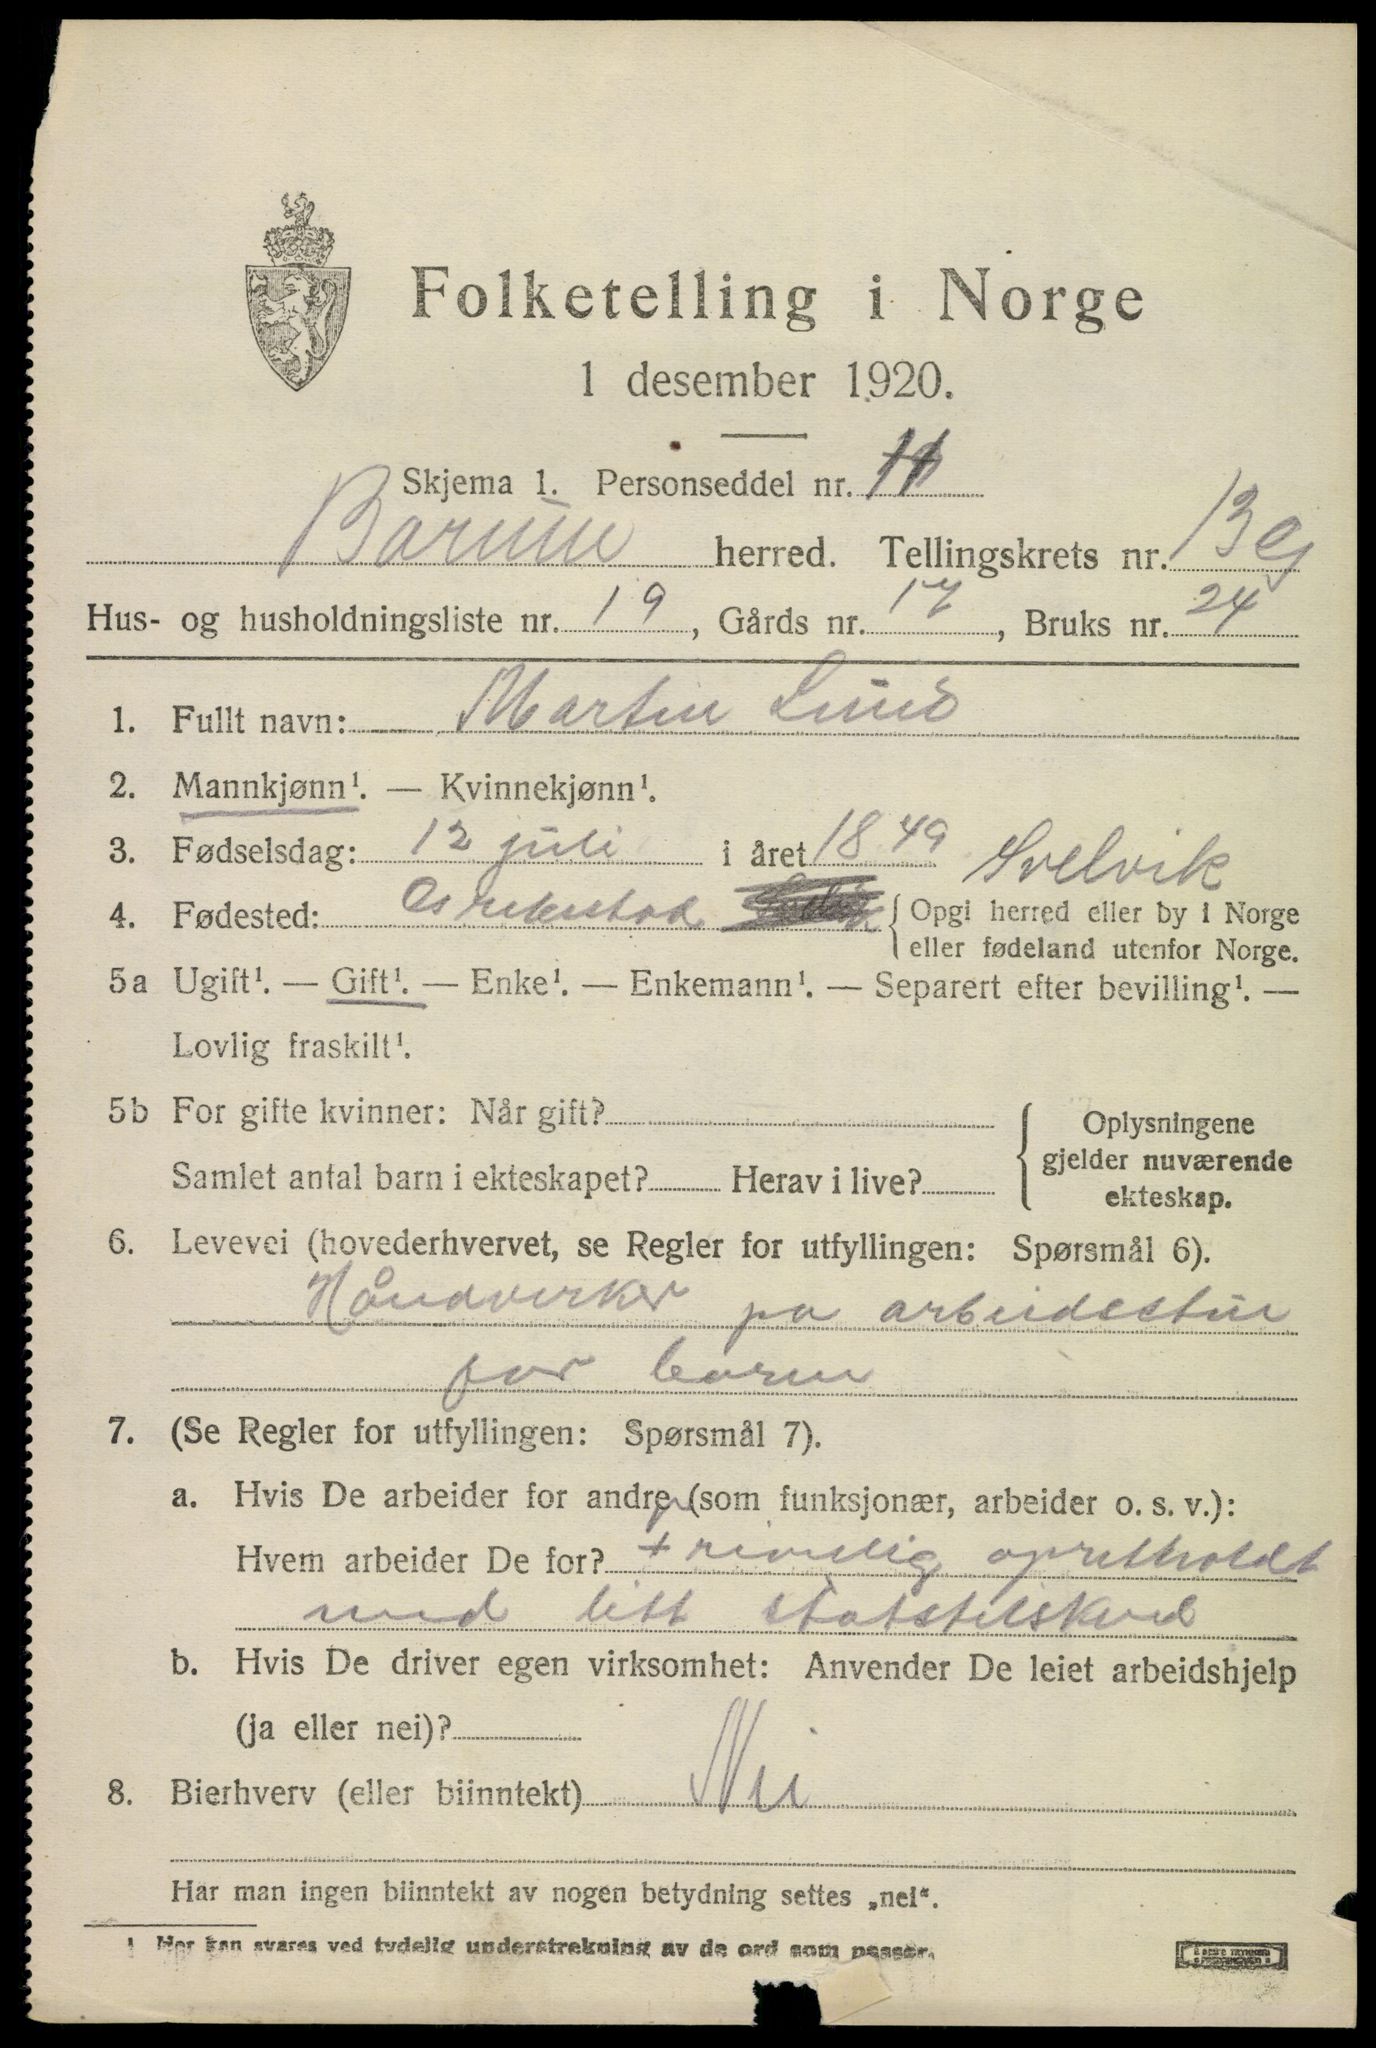 Folketelling i Norge
1 desember 1920.
Skjema 1. Personseddel nr.
Barum herred. Tellingskrets nr. 13
Hus- og husholdningsliste nr. 19, Gårds nr. 17, Bruks nr. 24
1. Fullt navn: Martin Lund
2. Mannkjønn¹. — Kvinnekjønn¹.
3. Fødselsdag: 12 juli i året 1849 Svelvik
4. Fødested: { Opgi herred eller by i Norge
eller fødeland utenfor Norge.
5a Ugift¹. — Gift¹. — Enke¹. — Enkemann¹. — Separert efter bevilling¹. —
Lovlig fraskilt¹.
5b For gifte kvinner: Når gift?
Samlet antal barn i ekteskapet? Herav i live?
{ Oplysningene
gjelder nuværende
ekteskap.
6. Levevei (hovederhvervet, se Regler for utfyllingen: Spørsmål 6).
Håndverker pa arbeidsstue
for
7. (Se Regler for utfyllingen: Spørsmål 7).
a. Hvis De arbeider for andre (som funksjonær, arbeider o. s. v.):
Hvem arbeider De for? oprettholdt
med litt statstilskud
b. Hvis De driver egen virksomhet: Anvender De leiet arbeidshjelp
(ja eller nei)?
8. Bierhverv (eller biinntekt) Nei
Har man ingen biinntekt av nogen betydning settes „nei“.
1 Her kan svares ved tydelig understrekning av de ord som passer.